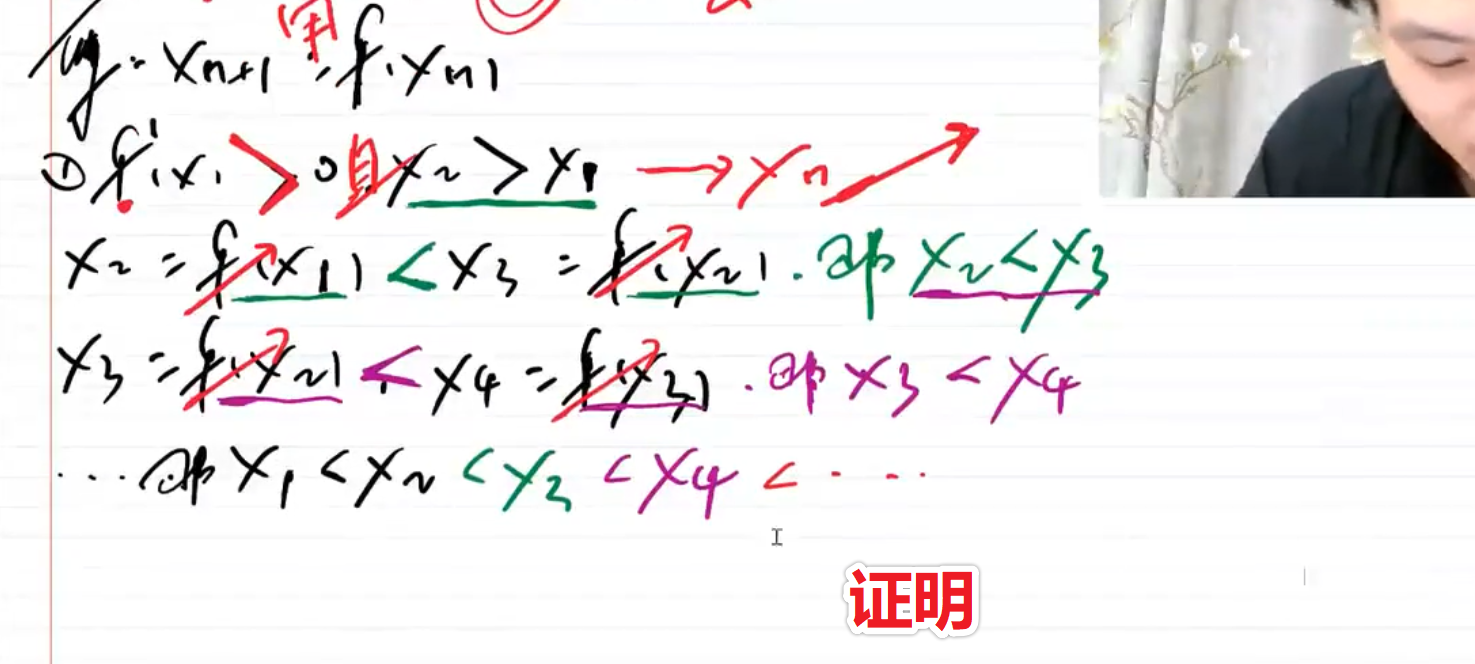 eg: Xn+1 = f(Xn)
用
① f'(x) > 0 且 X2 > X1 → Xn ↗
X2 = f(X1) < X3 = f(X2). 即 X2 < X3
X3 = f(X2) < X4 = f(X3). 即 X3 < X4
... 即 X1 < X2 < X3 < X4 < ....
证明